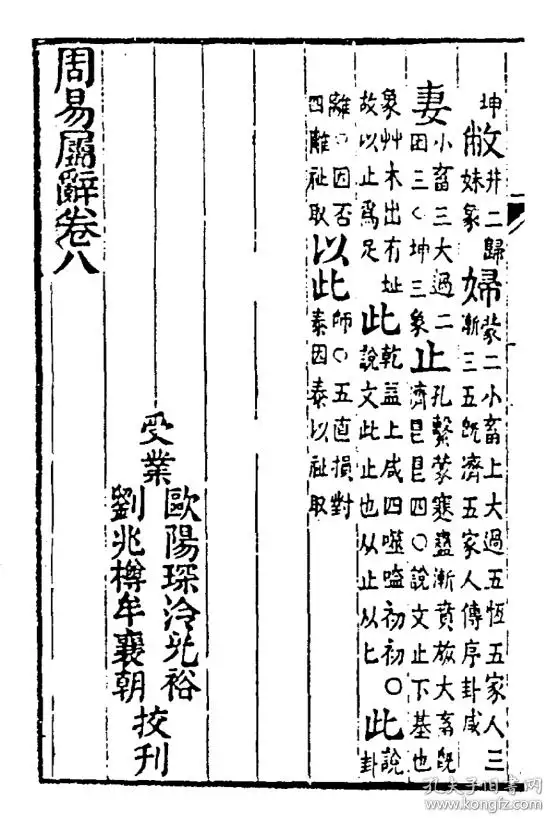 坤敝井二歸
妹象婦蒙二小畜上大過五恆五家人三
漸三五旣濟五家人傳序卦咸
妻小畜三大過二
田三く坤三象止孔繫蒙蹇蠱漸賁旅大畜旣
濟皀皀四〇說文止下基也
象艸木出有址
故以止爲足此乾益上咸四噬嗑初初〇
說文此止也从止以匕此說
卦
離〇因否
四離祉取以此師〇五直損對
泰因泰以祉取
受業
歐陽琛泠兆裕
劉兆樽牟襄朝
挍刊
周易屬辭卷八
孔夫子旧书网
www.kongfz.com